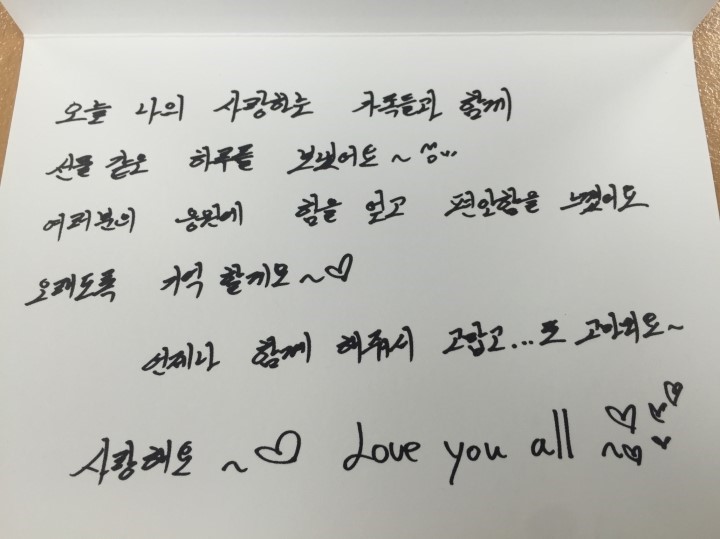 오늘 나의 사랑하는 가족들과 함께
선물 같은 하루를 보냈어요~ ^^...
여러분의 응원에 힘을 얻고 편안함을 느꼈어요
오래도록 기억 할게요~♡
언제나 함께 해줘서 고맙고...또 고마워요~
사랑해요 ~♡ Love you all ~♡♡♡♡♡